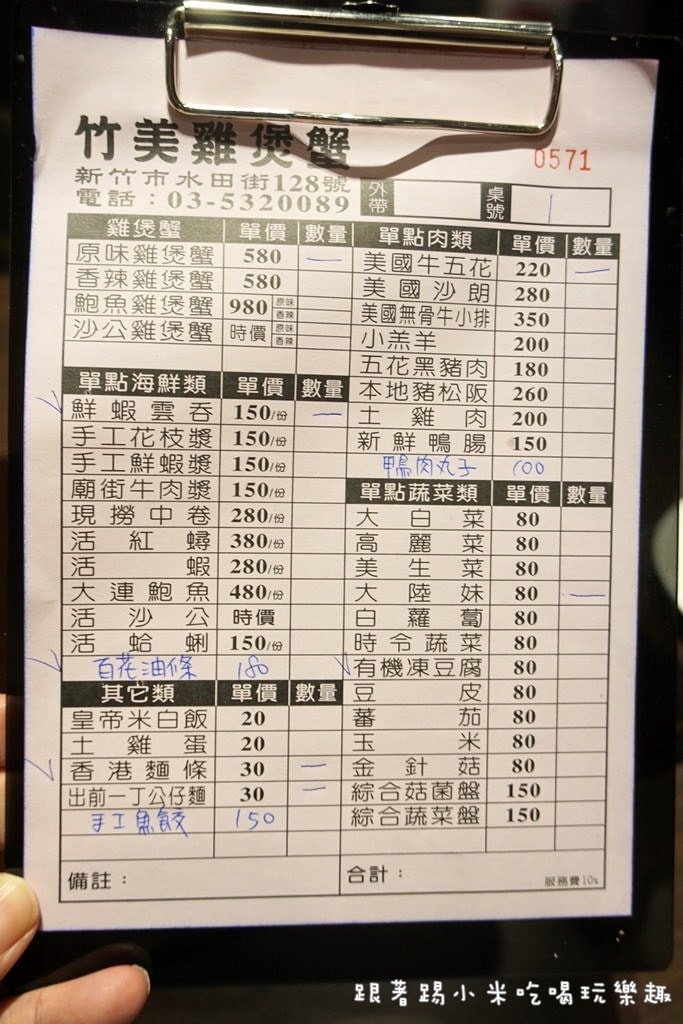 竹美雞煲蟹
0571
新竹市水田街128號
電話：03-5320089
外帶 桌號 1
雞煲蟹 單價 數量
原味雞煲蟹 580 一
香辣雞煲蟹 580
鮑魚雞煲蟹 980 原味 香辣
沙公雞煲蟹 時價 原味 香辣
單點海鮮類 單價 數量
鮮蝦雲吞 150/份 一
手工花枝漿 150/份
手工鮮蝦漿 150/份
廟街牛肉漿 150/份
現撈中卷 280/份
活紅蟳 380/份
活蝦 280/份
大連鮑魚 480/份
活沙公 時價
活蛤蜊 150/份
百花油條 180
其它類 單價 數量
皇帝米白飯 20
土雞蛋 20
香港麵條 30 一
出前一丁公仔麵 30 一
手工魚餃 150
備註：
單點肉類 單價 數量
美國牛五花 220 一
美國沙朗 280
美國無骨牛小排 350
小羔羊 200
五花黑豬肉 180
本地豬松阪 260
土雞肉 200
新鮮鴨腸 150
鴨肉丸子 100
單點蔬菜類 單價 數量
大白菜 80
高麗菜 80
美生菜 80
大陸妹 80 一
白蘿蔔 80
時令蔬菜 80
有機凍豆腐 80
豆皮 80
蕃茄 80
玉米 80
金針菇 80
綜合菇菌盤 150
綜合蔬菜盤 150
合計：
服務費10%
跟著踢小米吃喝玩樂趣